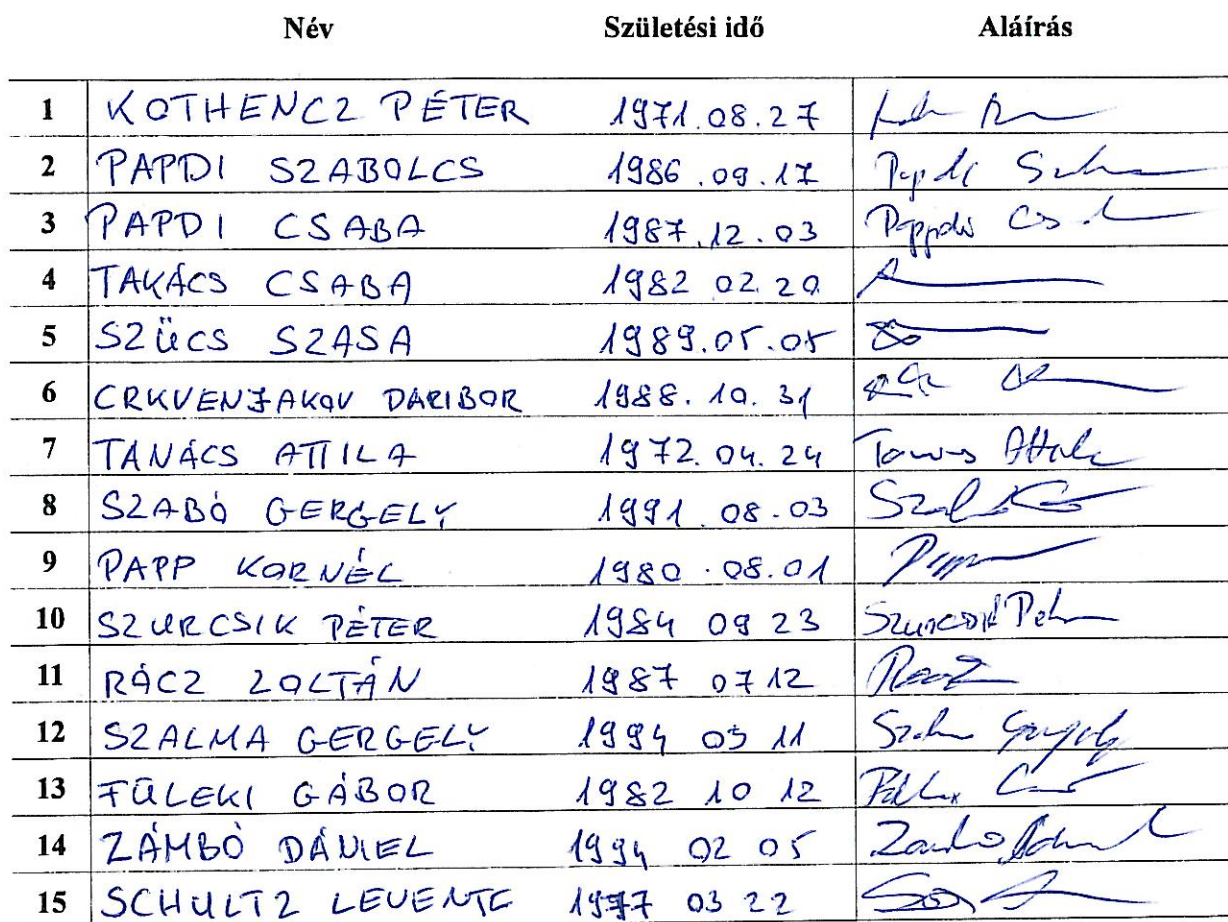 Név Születési idő Aláírás
1 KOTHENCZ PÉTER 1971.08.27
2 PAPDI SZABOLCS 1986.09.17
3 PAPDI CSABA 1987.12.03
4 TAKÁCS CSABA 1982 02.20
5 SZÜCS SZASA 1989.05.05
6 CRKVENJAKOV DARIBOR 1988.10.31
7 TANÁCS ATTILA 1972.04.24 Tanács Attila
8 SZABÓ GERGELY 1991.08.03
9 PAPP KORNÉL 1980.08.01
10 SZURCSIK PÉTER 1984 09 23 Szurcsik Péter
11 RÁCZ ZOLTÁN 1987 07 12
12 SZALMA GERGELY 1994 03 11
13 FÜLEKI GÁBOR 1982 10 12
14 ZÁMBÓ DÁNIEL 1994 02 05
15 SCHULTZ LEVENTE 1977 03 22